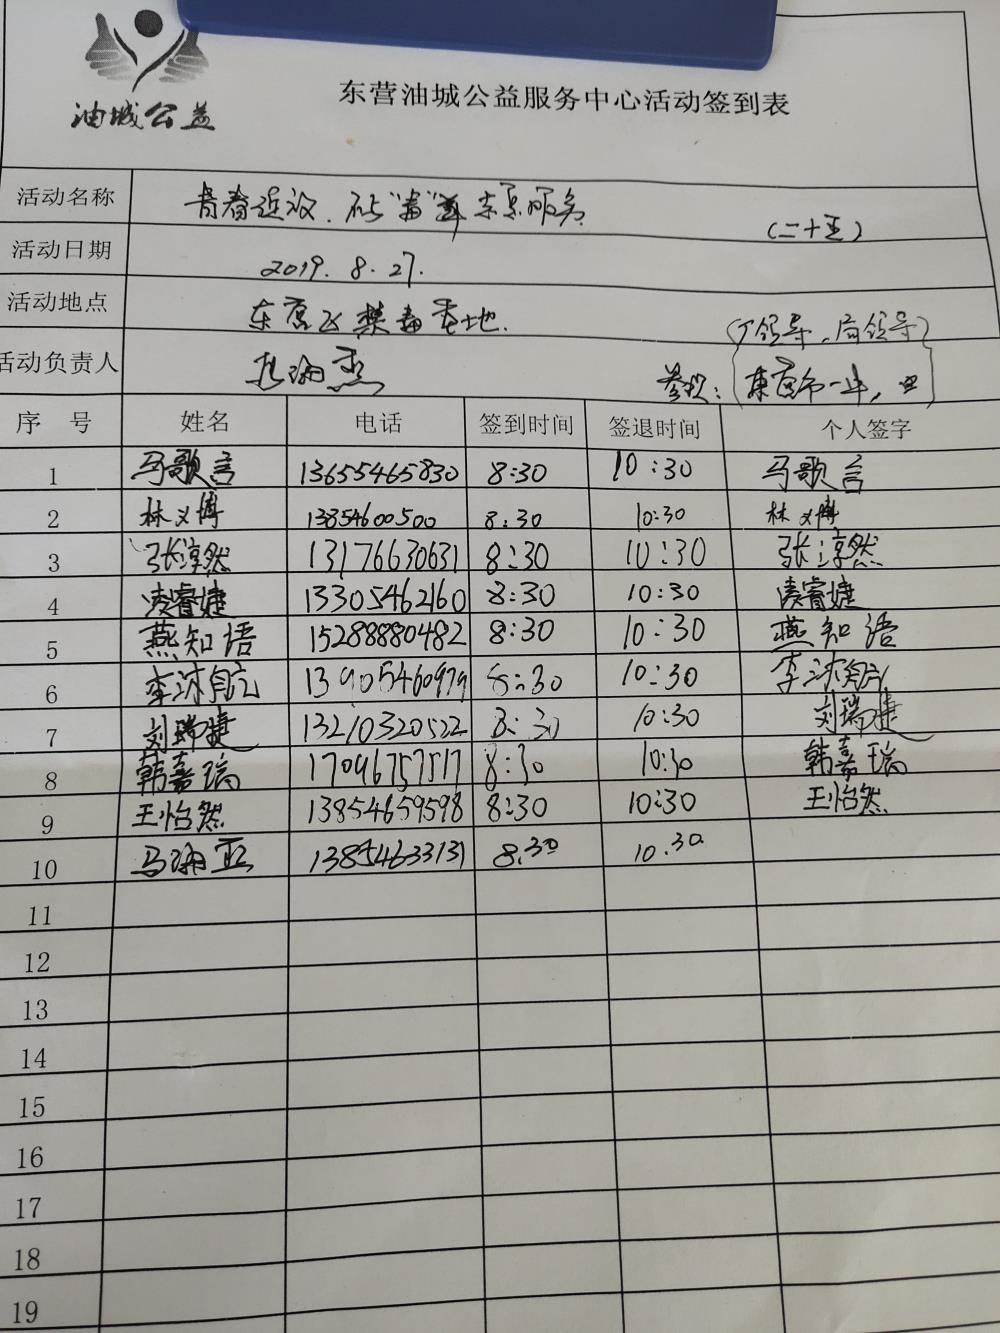 油城公益
东营油城公益服务中心活动签到表
活动名称 青春 "毒" 服务
(二十五)
活动日期 2019.8.27.
活动地点 东营区禁毒基地.
(厅领导、局领导)
活动负责人 参观: 东营市一中,
序 号 姓名 电话 签到时间 签退时间 个人签字
1 马歌言 13655465830 8:30 10:30 马歌言
2 林义博 13854600500 8:30 10:30 林义博
3 张淳然 13176630631 8:30 10:30 张淳然
4 凌睿婕 13305462160 8:30 10:30 凌睿婕
5 燕知语 15288880482 8:30 10:30 燕知语
6 李沐航 13905460979 8:30 10:30 李沐航
7 刘瑞婕 13210320522 8:30 10:30 刘瑞婕
8 韩嘉瑞 17096757517 8:30 10:30 韩嘉瑞
9 王怡然 13854659598 8:30 10:30 王怡然
10 马 亚 13854633131 8.30 10.30
11
12
13
14
15
16
17
18
19